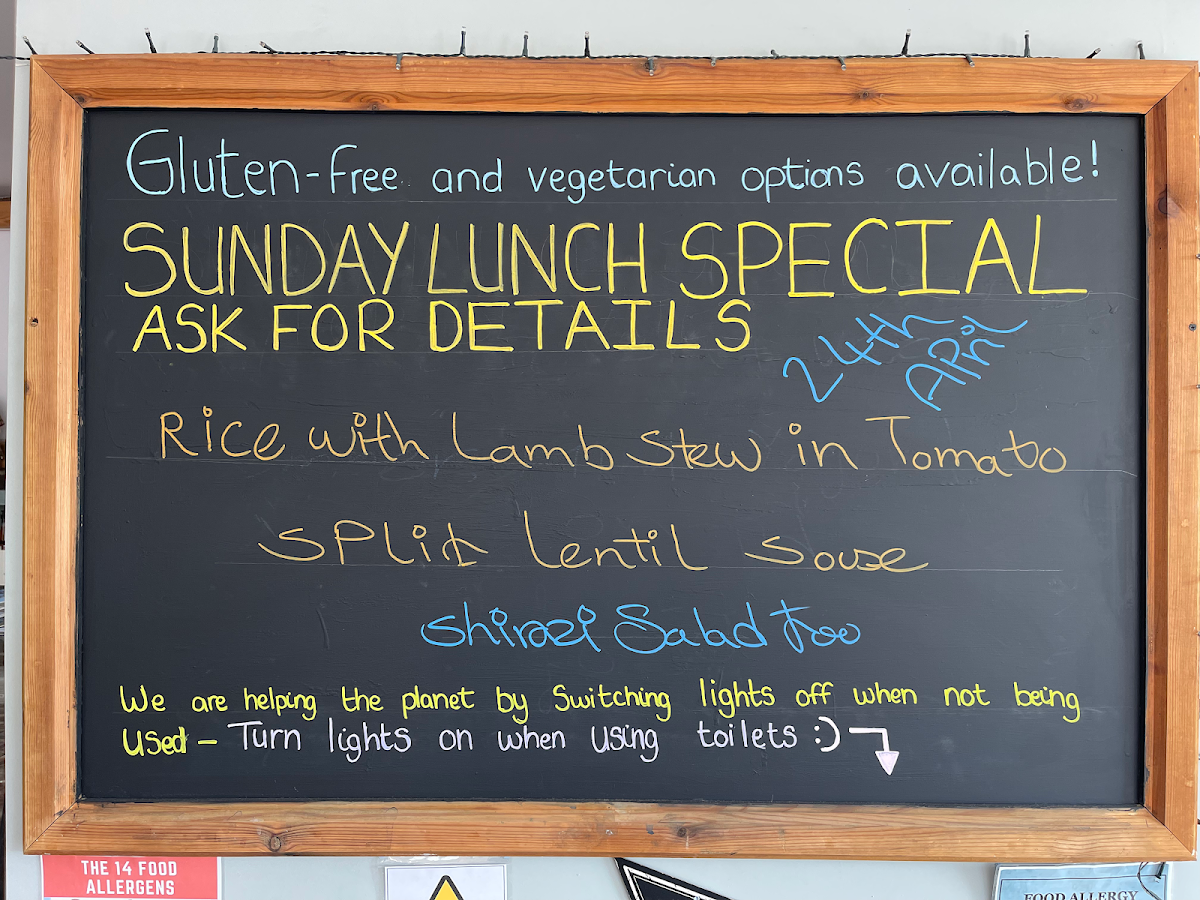 Gluten-free and vegetarian options available!
SUNDAY LUNCH SPECIAL
ASK FOR DETAILS
24th
APril
Rice with Lamb Stew in Tomato
SPlit lentil souse
Shirazi Salad too
We are helping the planet by Switching lights off when not being
Used - Turn lights on when using toilets :)
THE 14 FOOD
ALLERGENS
FOOD ALLERGY